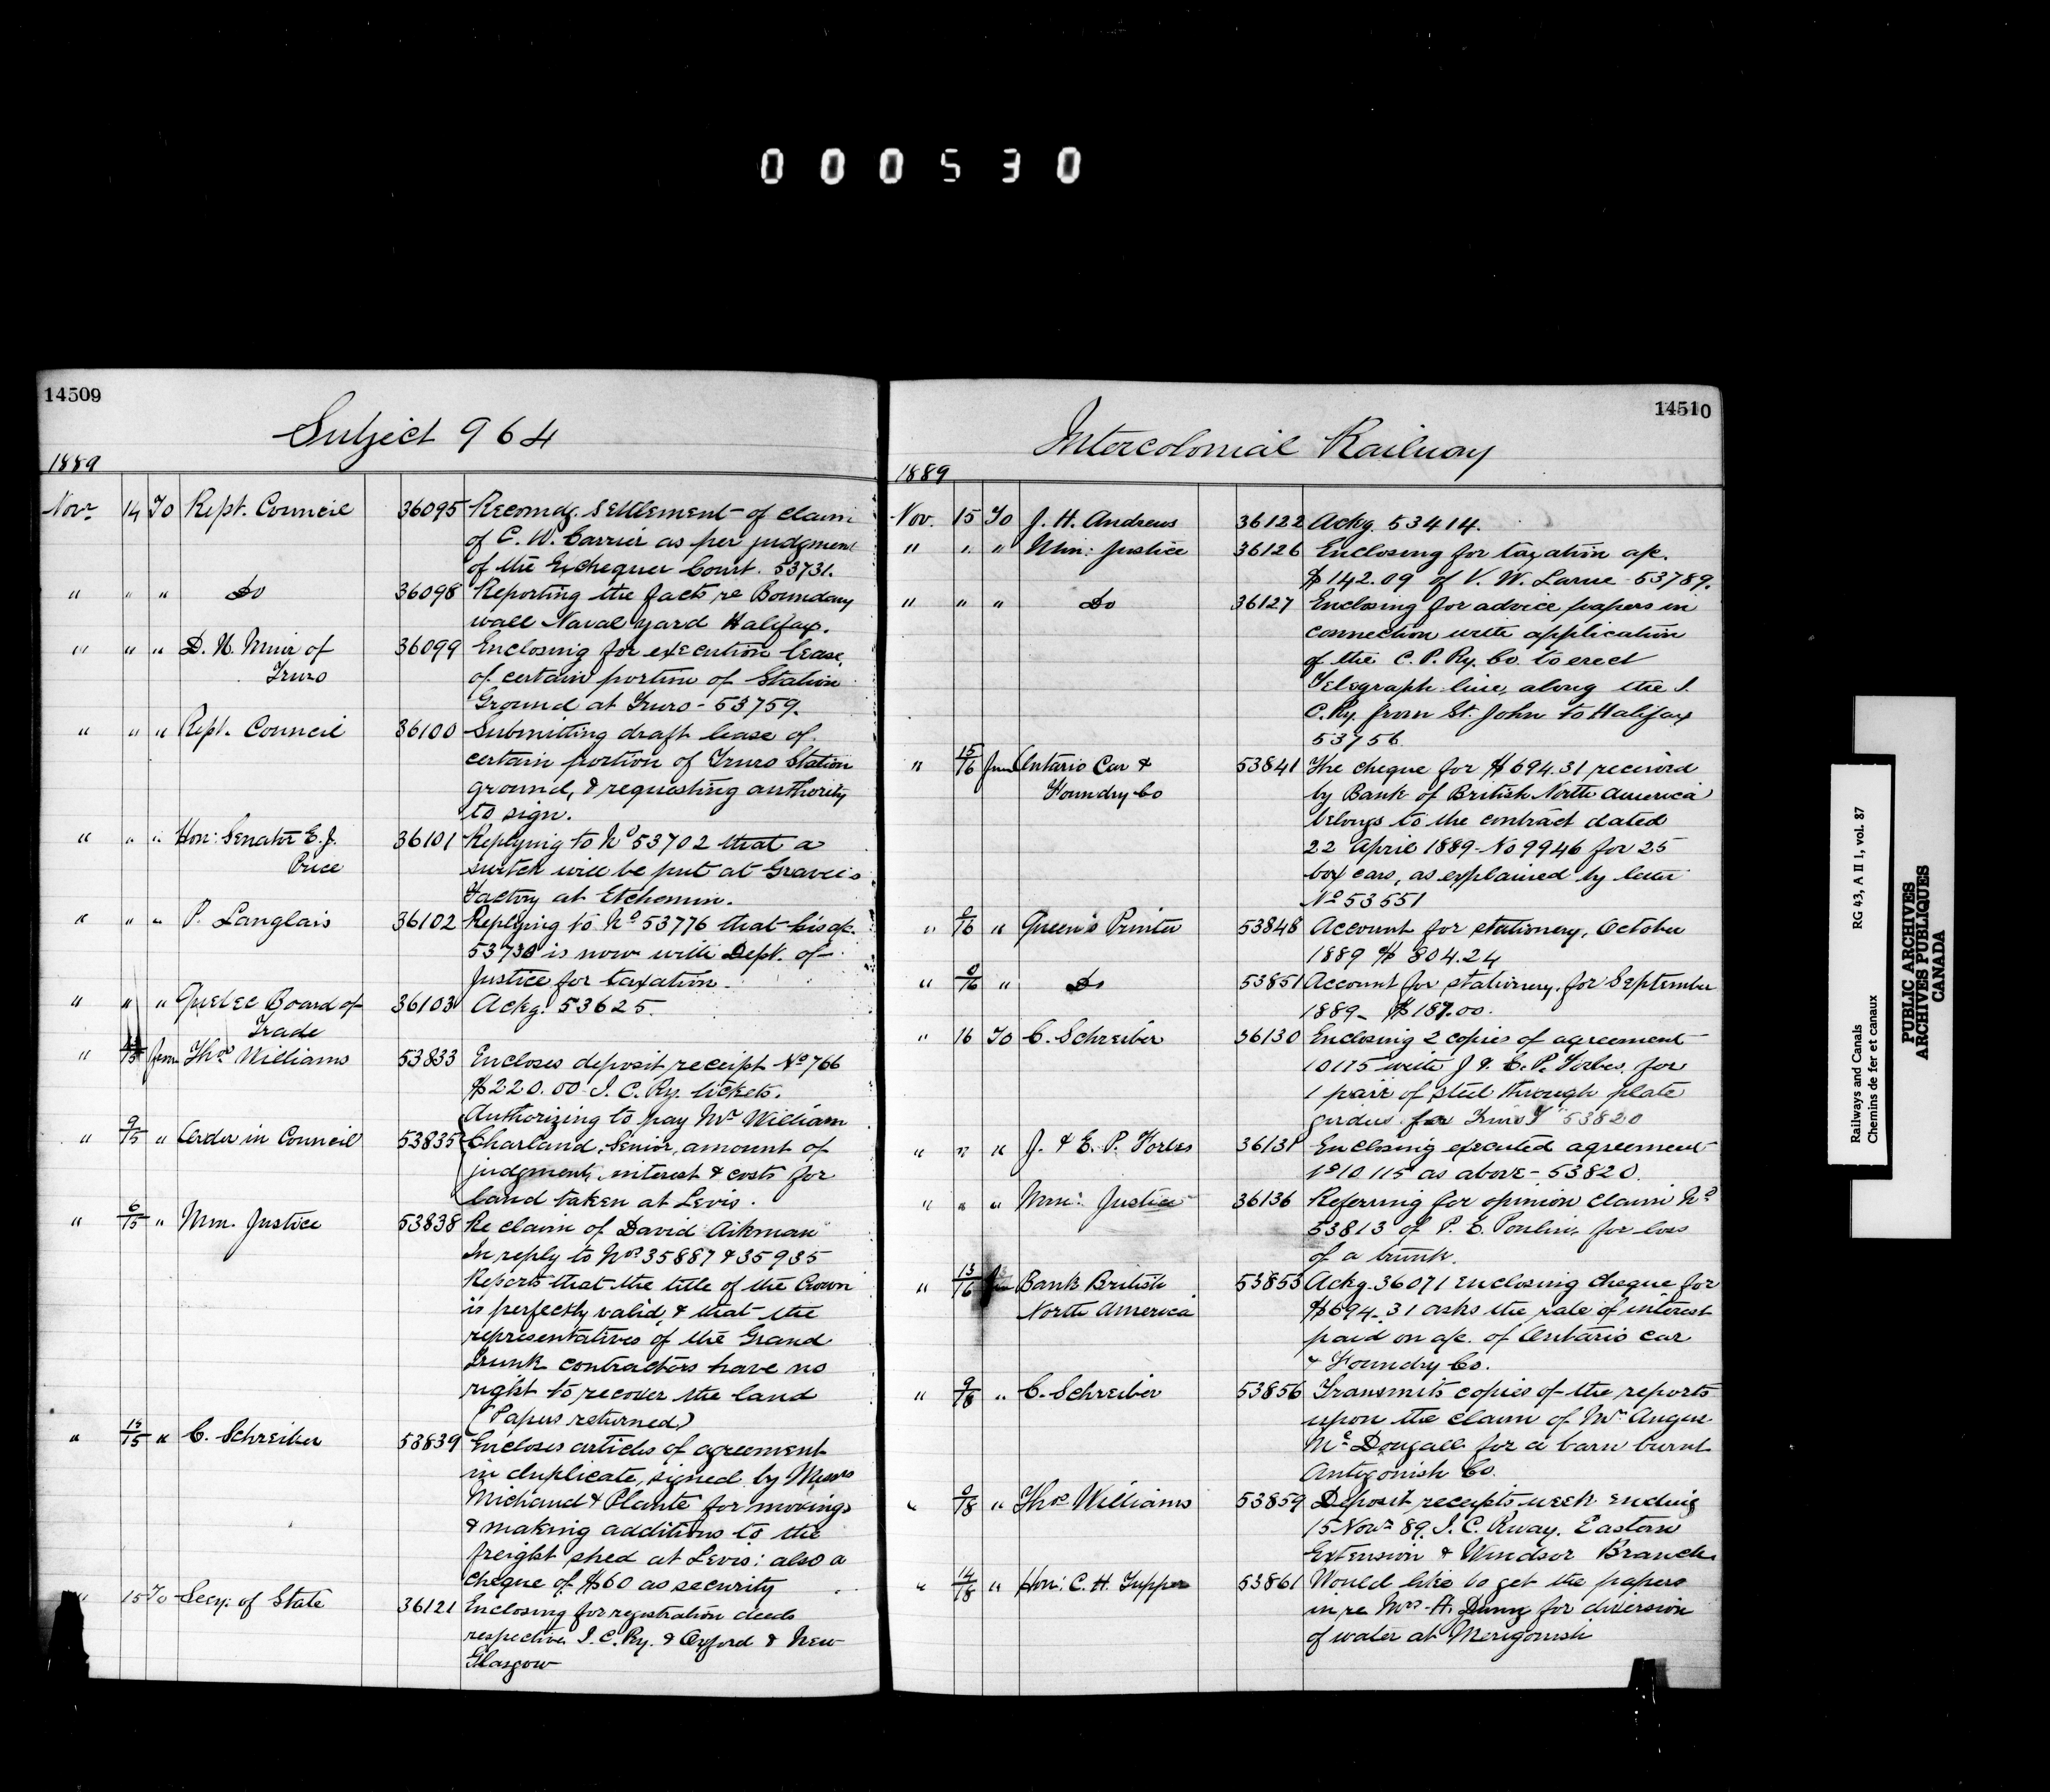 000530
14509
Subject 964
1889
Novr. 14 To Rept. Council 36095 Recomdg. settlement of claim
of C. W. Carrier as per judgment
of the Exchequer Court. 53731.
" " " Do 36098 Reporting the facts re Boundary
wall Naval yard Halifax.
" " " D. N. Muir of 36099 Enclosing for execution lease,
Truro of certain portion of Station
Ground at Truro - 53759.
" " " Rept. Council 36100 Submitting draft lease of
certain portion of Truro Station
ground, & requesting authority
to sign.
" " " Hon: Senator E. J. 36101 Replying to No 53702 that a
Price switch will be put at Gravel's
Factory at Etchemin.
" " " P. Langlais 36102 Replying to No 53776 that his a/c.
53730 is now with Dept. of
Justice for taxation.
" " " Quebec Board of 36103 Ackg. 53625.
Trade
" 15 from Thos Williams 53833 Encloses deposit receipt No 766
$220.00 I. C. Ry. tickets.
Authorizing to pay Mr William
" 9/15 " Order in Council 53835 Charland, Senior, amount of
judgment, interest & costs for
land taken at Levis.
" 6/15 " Min. Justice 53838 Re claim of David Aikman
In reply to Nos 35887 & 35935
Reports that the title of the Crown
is perfectly valid, & that the
representatives of the Grand
Trunk contractors have no
right to recover the land
(Papers returned)
" 15/15 " C. Schreiber 53839 Encloses articles of agreement
in duplicate, signed by Messrs
Michaud & Plante for moving
& making additions to the
freight shed at Levis: also a
cheque of $60 as security
" 15 To Secy. of State 36121 Enclosing for registration deeds
respective I. C. Ry. & Oxford & New
Glasgow
14510
Intercolonial Railway
1889
Nov. 15 To J. H. Andrews 36122 Ackg. 53414.
" " " Min: Justice 36126 Enclosing for taxation a/c.
$142.09 of V. W. Larue 53789.
" " " Do 36127 Enclosing for advice papers in
connection with application
of the C. P. Ry. Co. to erect
Telegraph line, along the I.
C. Ry. from St. John to Halifax
53756
" 15/16 from Ontario Car & 53841 The cheque for $694.31 received
Foundry Co by Bank of British North America
belongs to the contract dated
22 April 1889 - No 9946 for 25
box cars, as explained by letter
No 53551
" 9/16 " Queen's Printer 53848 Account for stationery, October
1889 $804.24
" 0/16 " Do 53851 Account for stationery, for September
1889 - $187.00.
" 16 To C. Schreiber 36130 Enclosing 2 copies of agreement
10115 with J. & E. P. Forbes, for
1 pair of steel through plate
girders for 53820
" " " J. & E. P. Forbes 36131 Enclosing executed agreement
No 10115 as above - 53820.
" " " Min: Justice 36136 Referring for opinion claim No
53813 of P. E. Poulin, for loss
of a trunk.
" 13/16 from Bank British 53853 Ackg. 36071 enclosing cheque for
North America $694.31 asks the rate of interest
paid on a/c. of Ontario car
& Foundry Co.
" 9/18 " C. Schreiber 53856 Transmits copies of the reports
upon the claim of Mr. Angus
McDougall for a barn burnt
Antigonish Co.
" 0/18 " Thos Williams 53859 Deposit receipts week ending
15 Novr 89. I. C. Rway. Eastern
Extension & Windsor Branch
" 14/18 " Hon: C. H. Tupper 53861 Would like to get the papers
in re Mrs. A. Dunn for diversion
of water at Merigonish
Railways and Canals RG 43, A II 1, vol. 87
Chemins de fer et canaux
PUBLIC ARCHIVES
ARCHIVES PUBLIQUES
CANADA